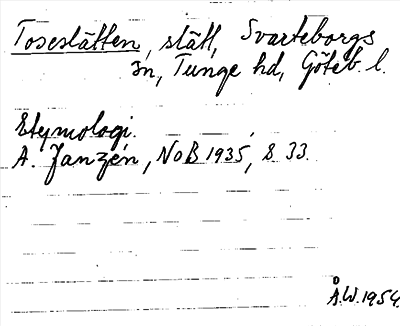 Toseslätten, slätt, Svarteborgs
sn, Tunge hd, Göteb. l.
Etymologi.
A. Janzén, NoB 1935, S. 33.
Å.W. 1954.